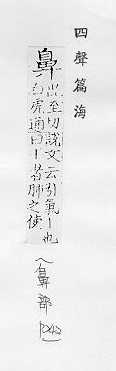 四聲篇海
鼻
毗至切說文云引氣丨也
白虎通曰丨者肺之使
鼻部